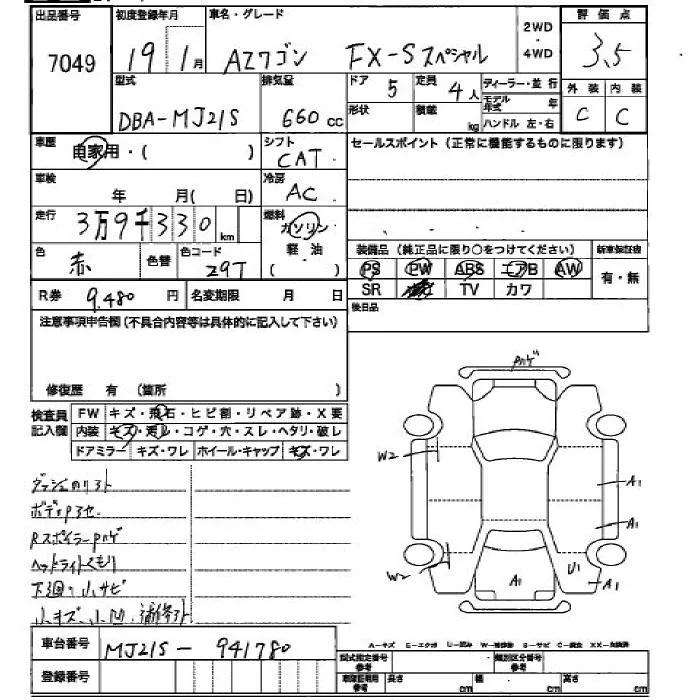 出品番号 初度登録年月 車名・グレード 2WD ・ 4WD 評価点
7049 19 1月 AZワゴン FX-Sスペシャル 3.5
型式 排気量 ドア 5 定員 4人 ディーラー・並行 外装 内装
DBA-MJ21S 660cc 形状 積載 kg モデル年式 年 C C
ハンドル 左・右
車歴 自家用・( ) シフト CAT セールスポイント(正常に機能するものに限ります)
車検 年 月( 日) 冷房 AC
走行 3万9千330km 燃料 ガソリン
軽・油
( )
色 赤 色替 色コード 29T 装備品(純正品に限り○をつけてください) 新車保証書
PS PW ABS エアB AW 有・無
R券 9,480円 名変期限 月 日 SR TV カワ
注意事項申告欄(不具合内容等は具体的に記入して下さい) 後日品
修復歴 有 (箇所 )
検査員記入欄 FW キズ・飛石・ヒビ割・リペア跡・X要
内装 キズ・汚レ・コゲ・穴・スレ・ヘタリ・破レ
ドアミラー キズ・ワレ ホイール・キャップ キズ・ワレ
Pハゲ
W2
A1
A1
W2
A1
U1
A1
ボデーPヨゴレ
RスポイラーPハゲ
ヘッドライトくもり
下廻り小サビ
小キズ・小凹・補修跡
車台番号 MJ21S-941780
登録番号
A-キズ E-エクボ U-凹み W-補修跡 S-サビ C-腐食 XX-交換済
型式指定番号 参考 類別区分番号 参考
車庫証明用 参考 長さ cm 幅 cm 高さ cm